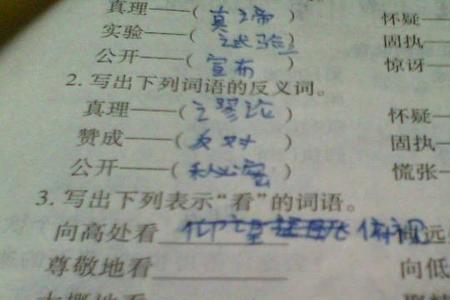 真理——(真谛) 怀疑—
实验——(试验) 固执—
公开——(宣布) 惊讶—
2. 写出下列词语的反义词。
真理——(谬论) 怀疑—
赞成——(反对) 固执—
公开——(秘密) 慌张—
3. 写出下列表示“看”的词语。
向高处看 仰望 俯视 远
尊敬地看 向低